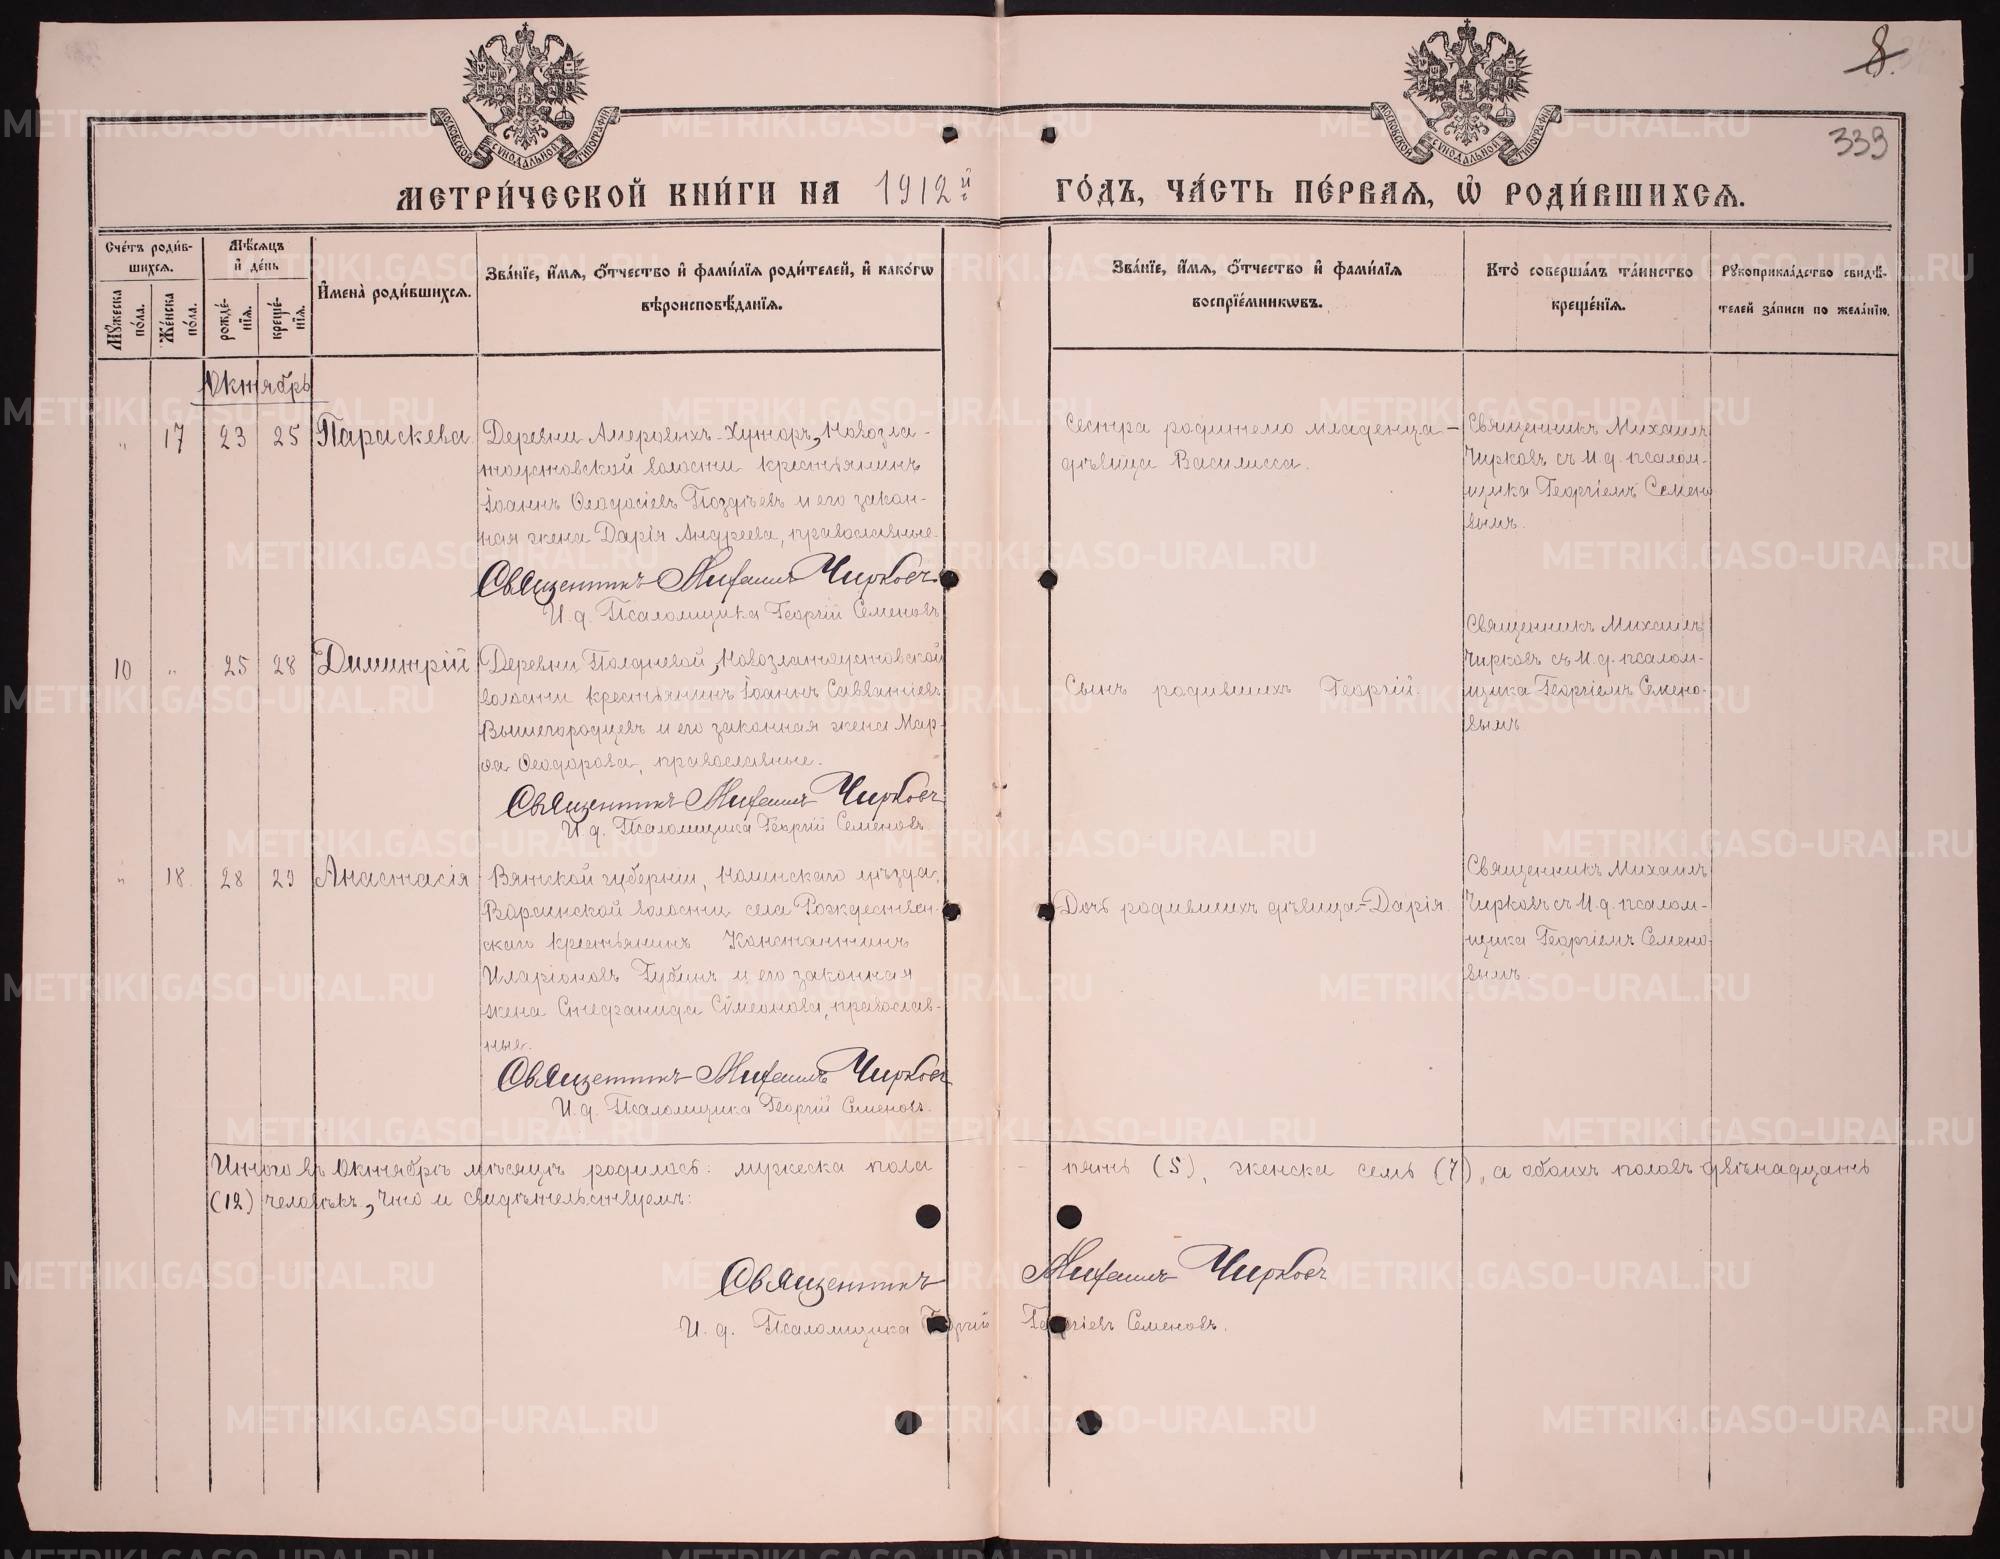 8.
339
МОСКОВСКОЙ СѴНОДАЛЬНОЙ ТИПОГРАФІИ
МОСКОВСКОЙ СѴНОДАЛЬНОЙ ТИПОГРАФІИ
МЕТРИ́ЧЕСКОЙ КНИ́ГИ НА 1912й ГО́ДЪ, ЧА́СТЬ ПЕ́РВАѦ, Ѡ РОДИ́ВШИХСѦ.
Сче́тъ роди́в-
шихсѧ.
Мꙋжеска по́ла.
Же́нска по́ла.
Мѣ́сѧцъ
и҆ де́нь
рожде́-
нїѧ.
креще́-
нїѧ.
И҆мена̀ роди́вшихсѧ.
Зва́нїе, и҆́мѧ, ѻ҆́тчество и҆ фами́лїѧ роди́телей, и҆ како́гѡ
вѣроисповѣ́данїѧ.
Зва́нїе, и҆́мѧ, ѻ҆́тчество и҆ фами́лїѧ
воспрїе́мникѡвъ.
Кто̀ соверша́лъ та́инство
креще́нїѧ.
Рꙋкоприкла́дство свидѣ́-
телей за́писи по жела́нїю.
Октябрь
" 17 23 25 Параскева
Деревни Амеровыхъ-Хуторъ, Новозла-
тоустовской волости крестьянинъ
Іоаннъ Ѳеодосіевъ Поздѣевъ и его закон-
ная жена Дарія Андреева, православные.
Священникъ Михаилъ Чирковъ.
И. д. Псаломщика Георгій Семеновъ
Сестра родителю младенца -
дѣвица Василисса.
Священникъ Михаилъ
Чирковъ съ И. д. псалом-
щика Георгіемъ Семено
вымъ.
10 " 25 28 Димитрій
Деревни Полдневой, Новозлатоустовской
волости крестьянинъ Іоаннъ Савватіевъ
Вышегородцевъ и его законная жена Мар-
ѳа Ѳеодорова, православные.
Священникъ Михаилъ Чирковъ
И. д. Псаломщика Георгій Семеновъ
Сынъ родившихъ Георгій.
Священникъ Михаилъ
Чирковъ съ И. д. псалом-
щика Георгіемъ Семено-
вымъ
" 18. 28 29 Анастасія
Вятской губерніи, Нолинскаго уѣзда,
волости села Рождествен-
скаго крестьянинъ Константинъ
Иларіоновъ Губинъ и его законная
жена Стефанида Сѵмеонова, православ-
ные.
Священникъ Михаилъ Чирковъ
И. д. Псаломщика Георгій Семеновъ.
Дочь родившихъ дѣвица - Дарія.
Священникъ Михаилъ
Чирковъ съ И. д. псалом-
щика Георгіемъ Семено-
вымъ.
Итого въ Октябрѣ мѣсяцѣ родилось: мужеска пола пять (5), женска семь (7), а обоихъ половъ двѣнадцать
(12) человѣкъ, что и свидѣтельствуемъ:
Священникъ Михаилъ Чирковъ
И. д. Псаломщика Георгій Георгіевъ Семеновъ.
METRIKI.GASO-URAL.RU